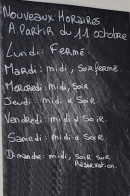 Nouveaux Horaires
A Partir du 11 octobre
Lundi : Fermé.
Mardi : midi, Soir fermé.
Mercredi : midi, Soir
Jeudi : midi & Soir.
Vendredi : midi & Soir.
Samedi : midi & Soir.
Dimanche : midi, Soir sur
Réservation.